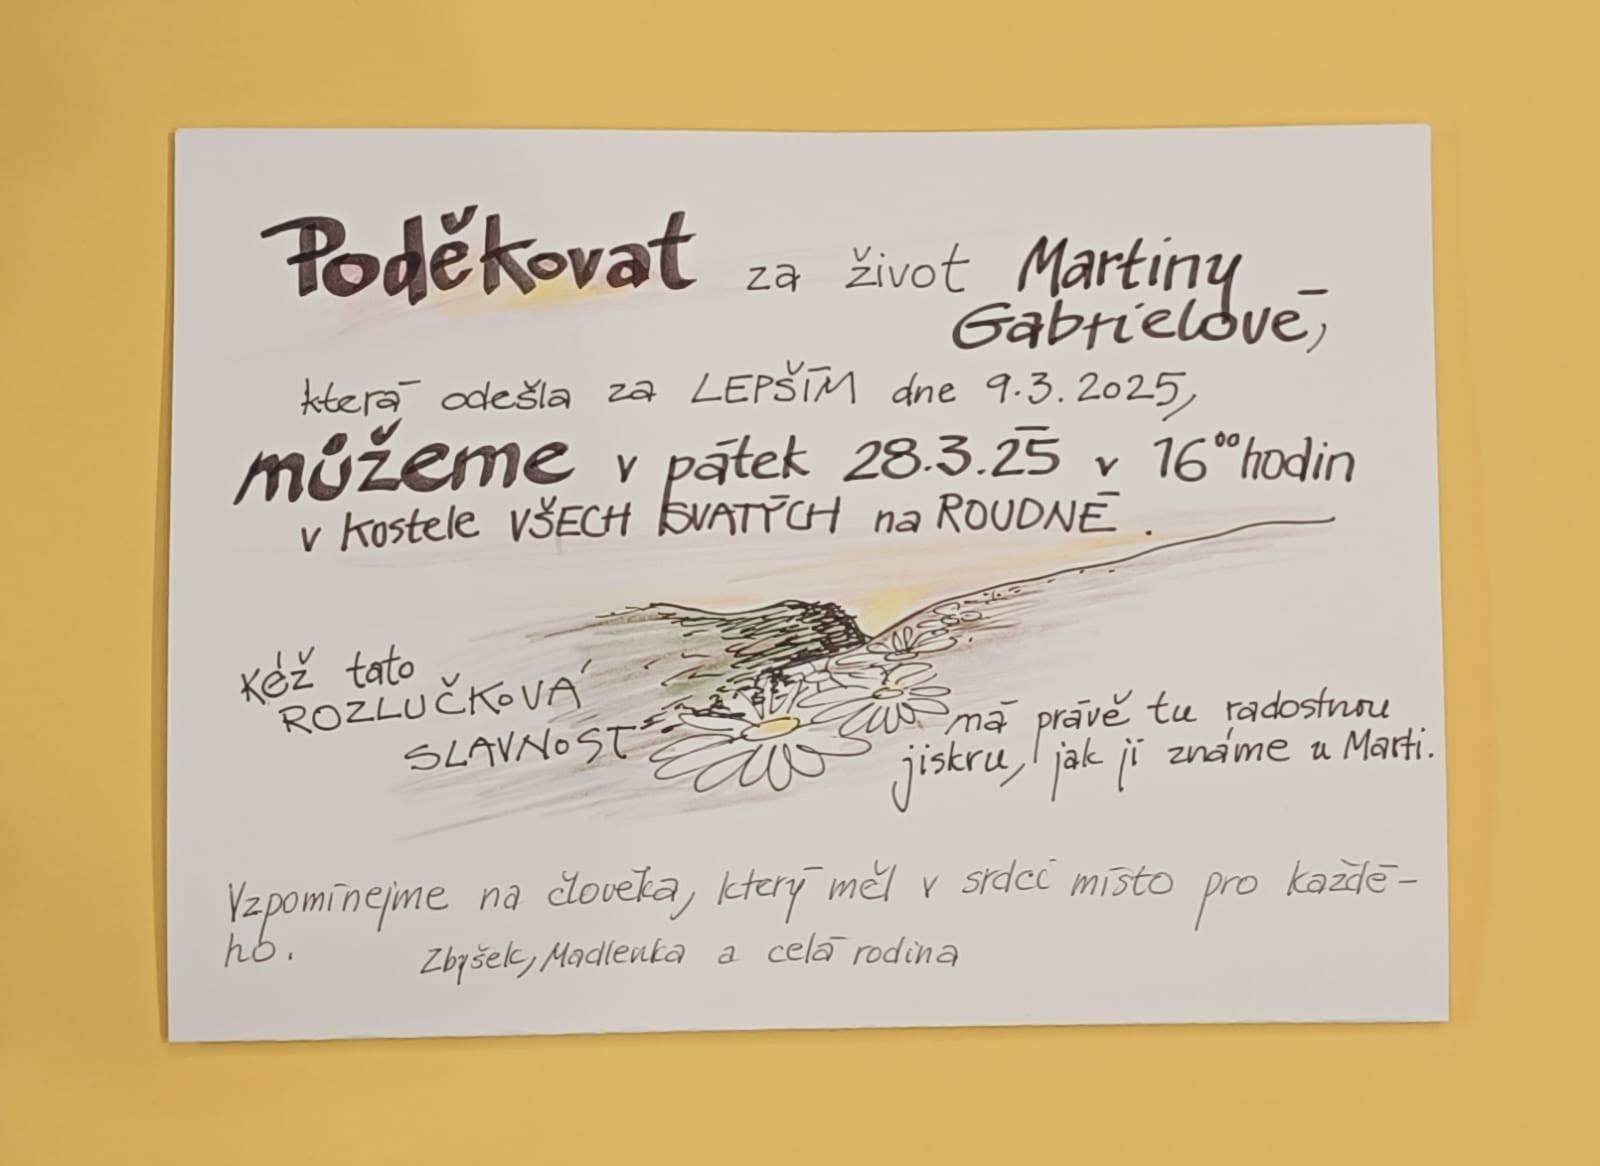 Poděkovat za život Martiny
Gabrielové,
která odešla za LEPŠÍM dne 9.3.2025,
můžeme v pátek 28.3.25 v 16⁰⁰ hodin
v kostele VŠECH SVATÝCH na ROUDNÉ.
Kéž tato
ROZLUČKOVÁ
SLAVNOST
má právě tu radostnou
jiskru, jak ji známe u Marti.
Vzpomínejme na člověka, který měl v srdci místo pro každé-
ho.
Zbyšek, Madlenka a celá rodina